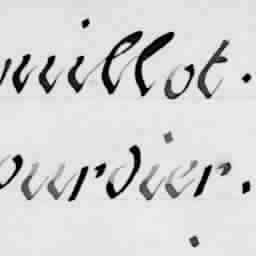 uillot.
ourdier.